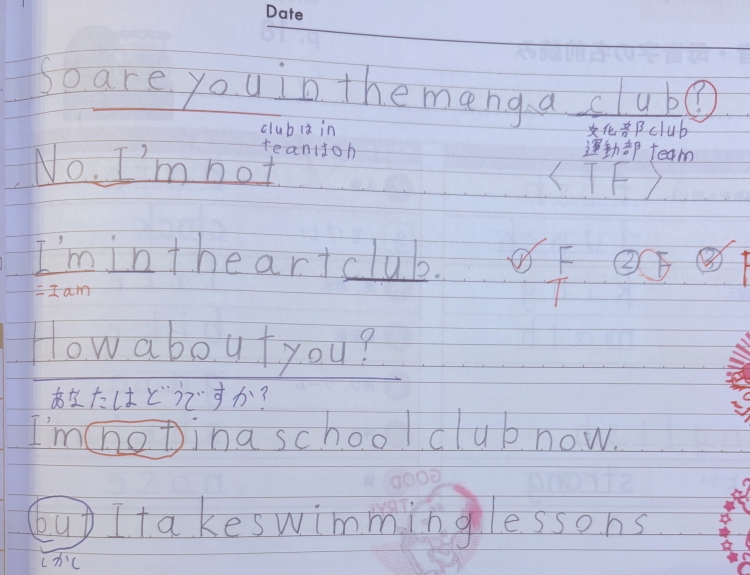 Date
So are you in the manga club?
club は in
team は on
文化部 club
運動部 team
No. I'm not
< TF >
I'm in the art club.
① F ② F ③
T
= I am
How about you?
あなたはどうですか?
I'm not in a school club now.
but I take swimming lessons.
しかし